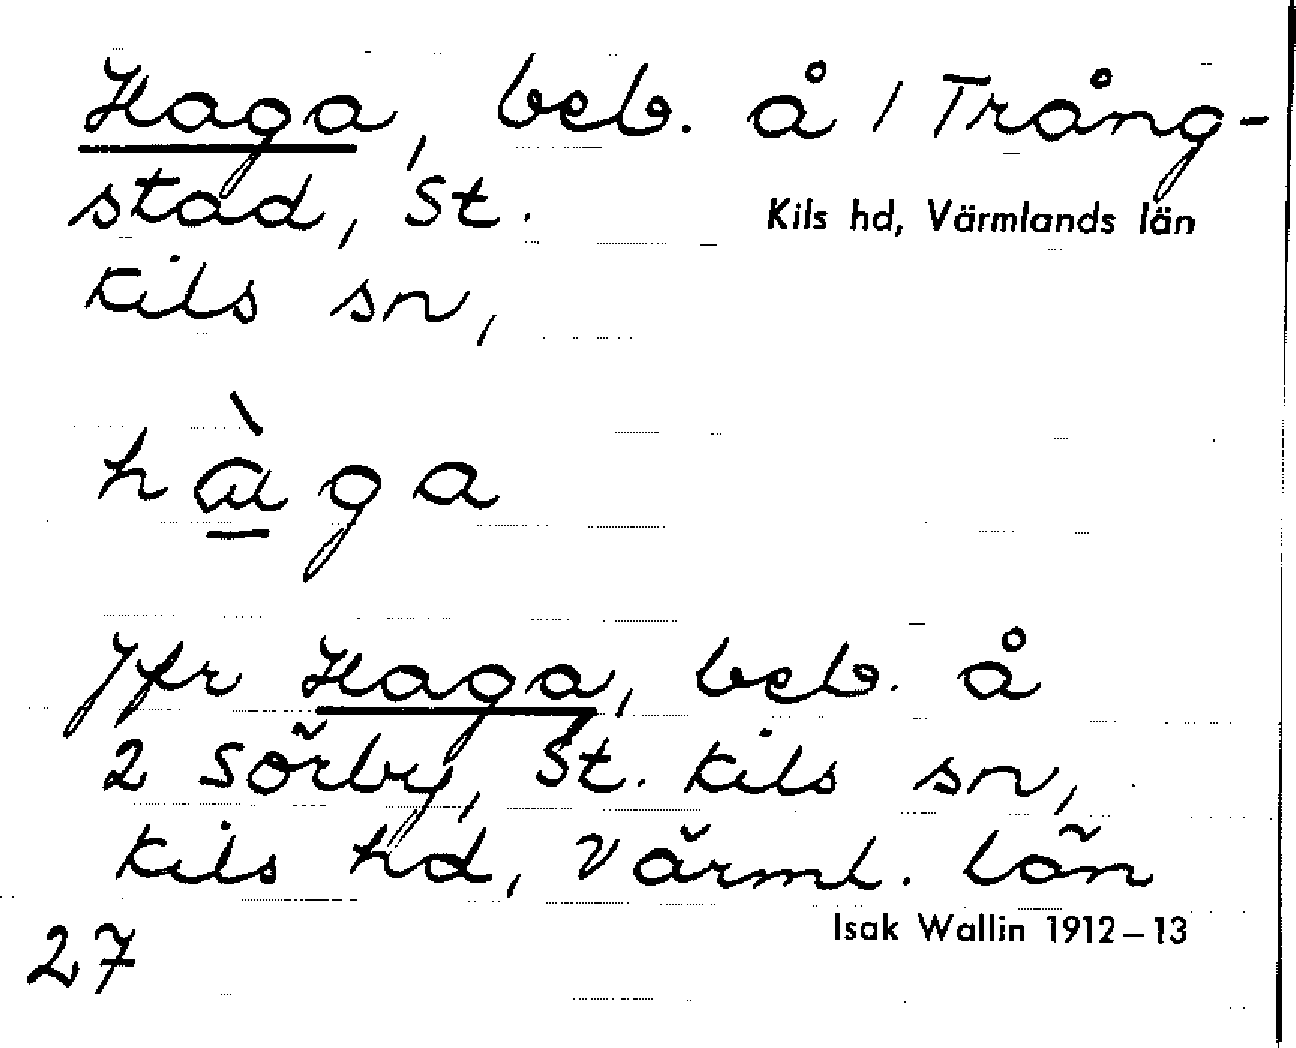 Haga, beb. å 1 Trång-
stad, St.
Kils hd, Värmlands län
Kils sn,
hàga
Jfr Haga, beb. å
2 Sörby, St. Kils sn,
Kils hd, Värml. län
Isak Wallin 1912–13
27